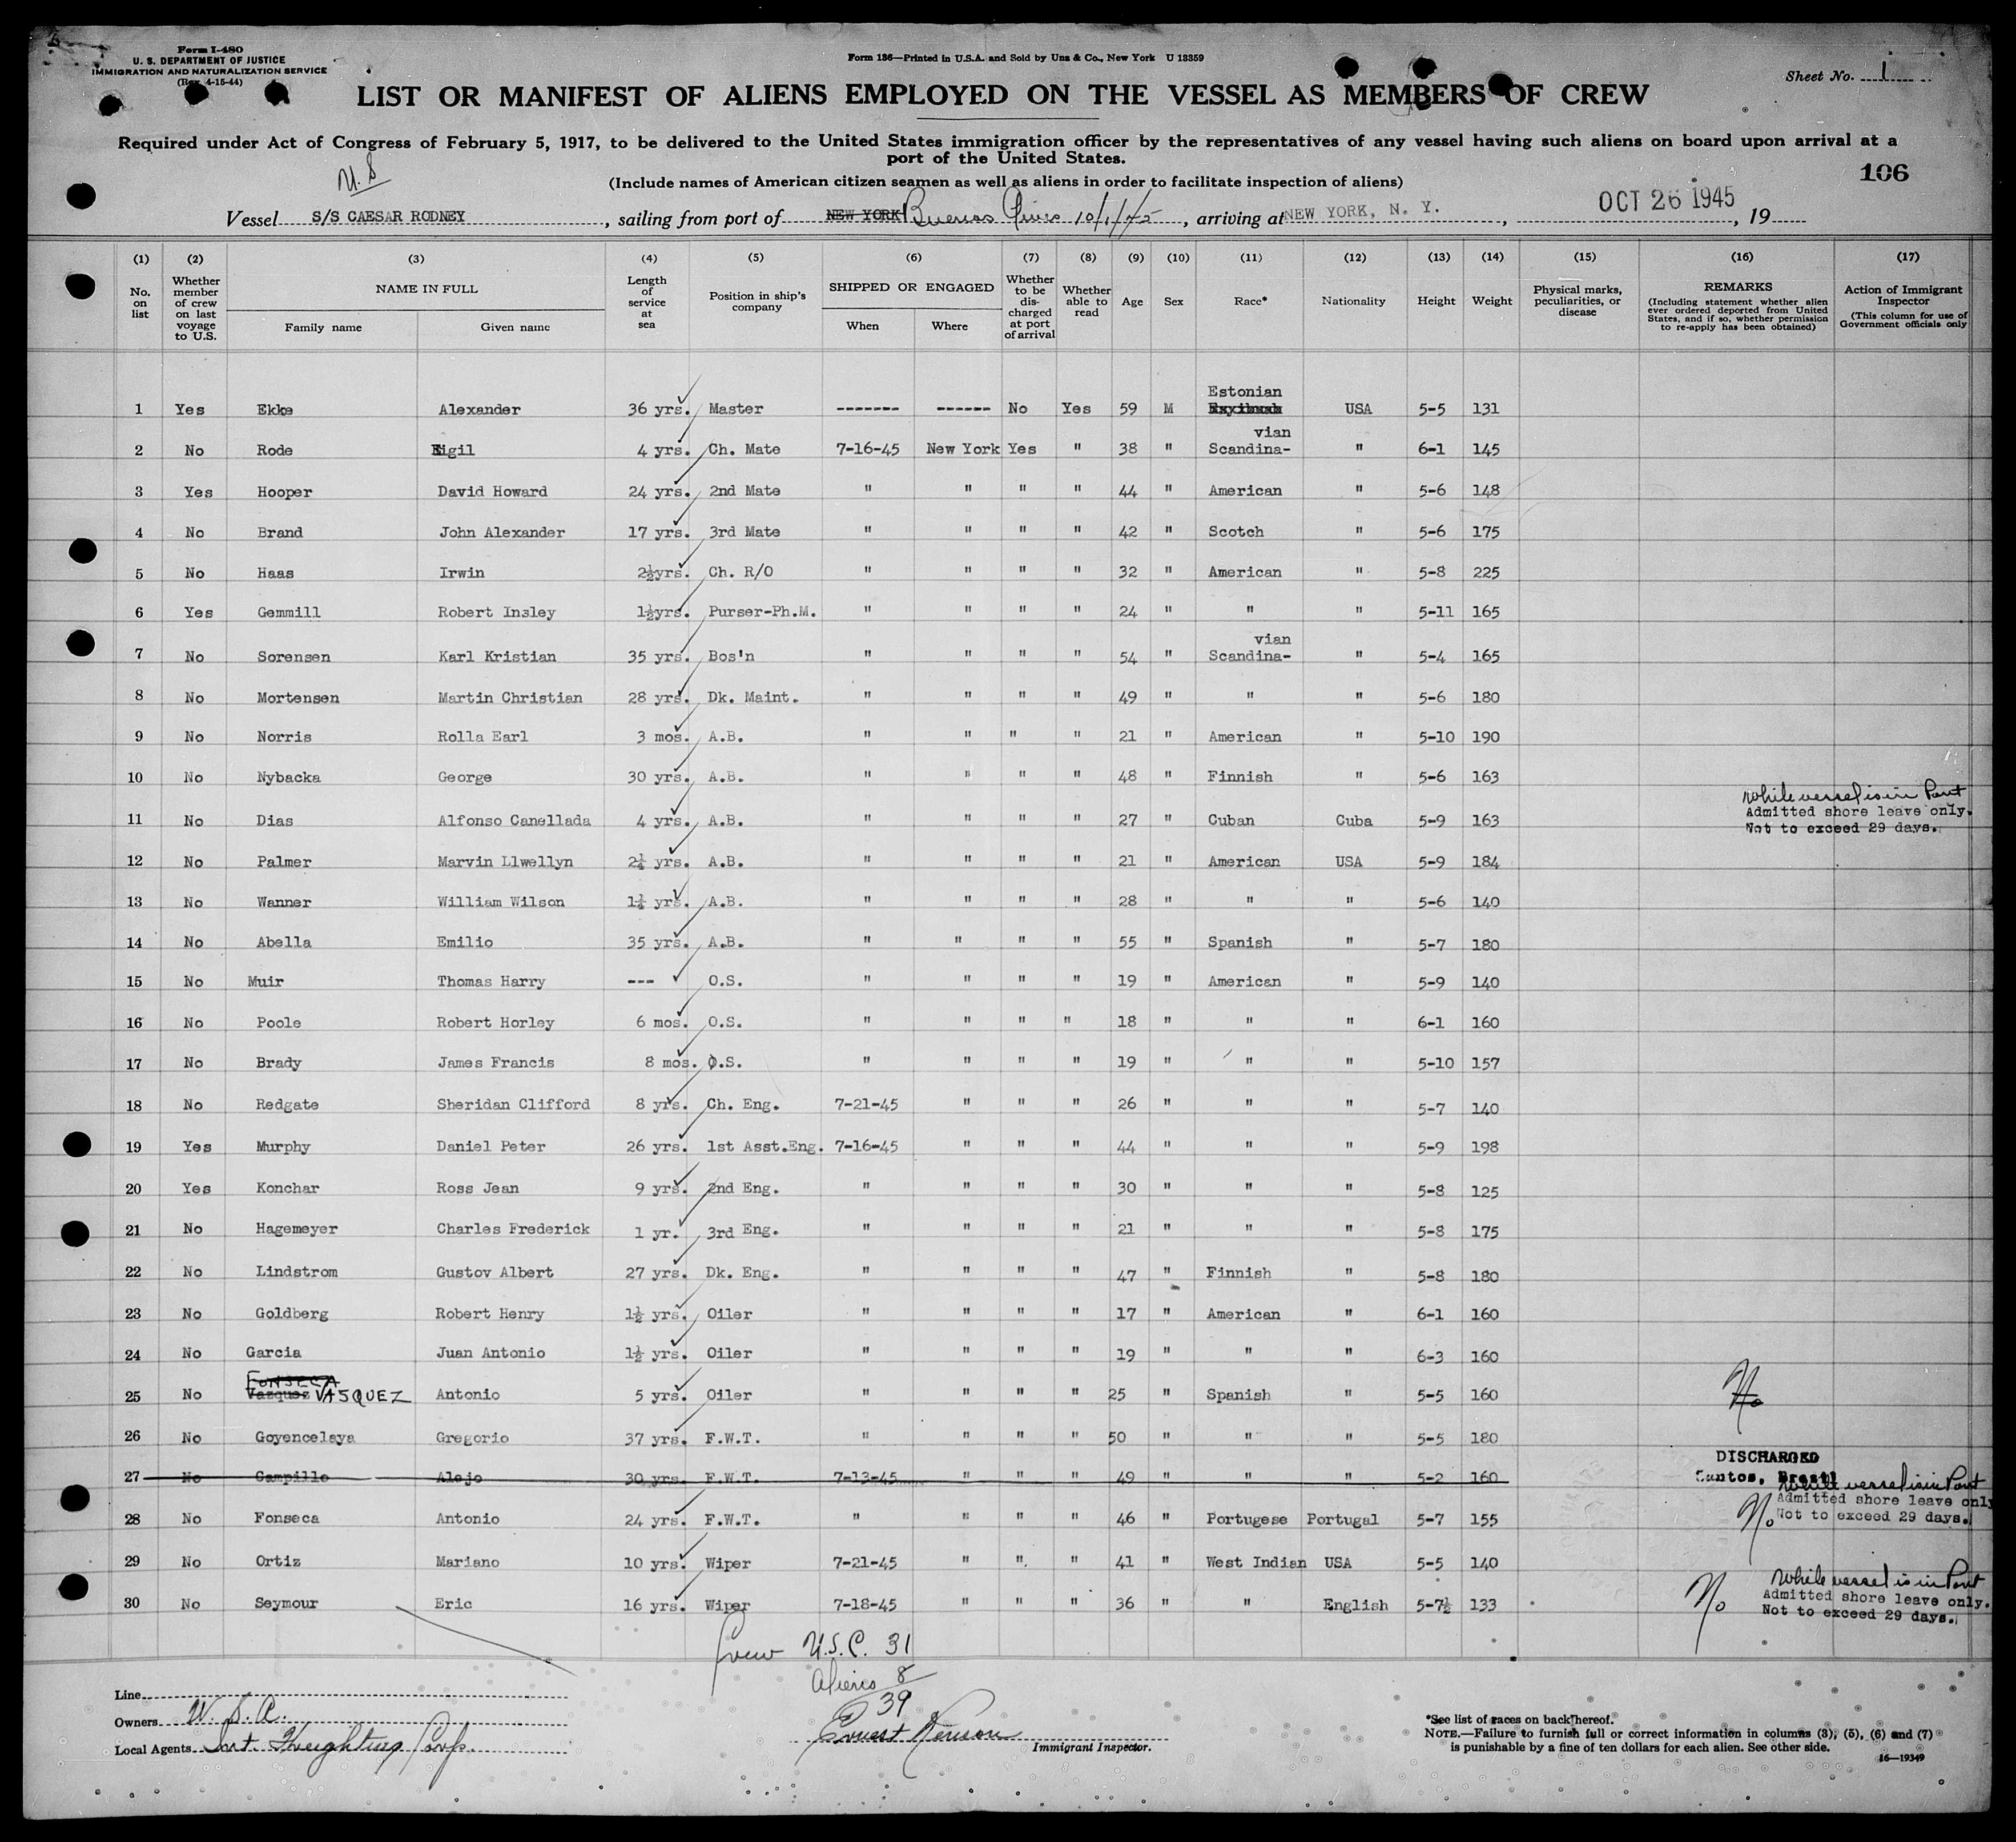 Form I-480
U. S. DEPARTMENT OF JUSTICE
IMMIGRATION AND NATURALIZATION SERVICE
(Rev. 4-15-44)
Form 136—Printed in U.S.A. and Sold by Unz & Co., New York U 13359
Sheet No. 1
LIST OR MANIFEST OF ALIENS EMPLOYED ON THE VESSEL AS MEMBERS OF CREW
Required under Act of Congress of February 5, 1917, to be delivered to the United States immigration officer by the representatives of any vessel having such aliens on board upon arrival at a
port of the United States.
106
U.S
(Include names of American citizen seamen as well as aliens in order to facilitate inspection of aliens)
Vessel S/S CAESAR RODNEY, sailing from port of NEW YORK Buenos Aires 10/1/45, arriving at NEW YORK, N. Y., OCT 26 1945, 19
(1) (2) (3) (4) (5) (6) (7) (8) (9) (10) (11) (12) (13) (14) (15) (16) (17)
No. on list
Whether member of crew on last voyage to U.S.
NAME IN FULL
Family name
Given name
Length of service at sea
Position in ship's company
SHIPPED OR ENGAGED
When
Where
Whether to be discharged at port of arrival
Whether able to read
Age
Sex
Race*
Nationality
Height
Weight
Physical marks, peculiarities, or disease
REMARKS
(Including statement whether alien ever ordered deported from United States, and if so, whether permission to re-apply has been obtained)
Action of Immigrant Inspector
(This column for use of Government officials only
Estonian
1 Yes Ekke Alexander 36 yrs. Master ------- ------ No Yes 59 M USA 5-5 131
vian
2 No Rode Eigil 4 yrs. Ch. Mate 7-16-45 New York Yes " 38 " Scandina- " 6-1 145
3 Yes Hooper David Howard 24 yrs. 2nd Mate " " " " 44 " American " 5-6 148
4 No Brand John Alexander 17 yrs. 3rd Mate " " " " 42 " Scotch " 5-6 175
5 No Haas Irwin 2½yrs. Ch. R/O " " " " 32 " American " 5-8 225
6 Yes Gemmill Robert Insley 1½yrs. Purser-Ph.M. " " " " 24 " " " 5-11 165
vian
7 No Sorensen Karl Kristian 35 yrs. Bos'n " " " " 54 " Scandina- " 5-4 165
8 No Mortensen Martin Christian 28 yrs. Dk. Maint. " " " " 49 " " " 5-6 180
9 No Norris Rolla Earl 3 mos. A.B. " " " " 21 " American " 5-10 190
10 No Nybacka George 30 yrs. A.B. " " " " 48 " Finnish " 5-6 163
While vessel is in Port
Admitted shore leave only.
11 No Dias Alfonso Canellada 4 yrs. A.B. " " " " 27 " Cuban Cuba 5-9 163
Not to exceed 29 days.
12 No Palmer Marvin Llwellyn 2¼ yrs. A.B. " " " " 21 " American USA 5-9 184
13 No Wanner William Wilson yrs. A.B. " " " " 28 " " " 5-6 140
14 No Abella Emilio 35 yrs. A.B. " " " " 55 " Spanish " 5-7 180
15 No Muir Thomas Harry --- O.S. " " " " 19 " American " 5-9 140
16 No Poole Robert Horley 6 mos. O.S. " " " " 18 " " " 6-1 160
17 No Brady James Francis 8 mos. O.S. " " " " 19 " " " 5-10 157
18 No Redgate Sheridan Clifford 8 yrs. Ch. Eng. 7-21-45 " " " 26 " " " 5-7 140
19 Yes Murphy Daniel Peter 26 yrs. 1st Asst.Eng. 7-16-45 " " " 44 " " " 5-9 198
20 Yes Konchar Ross Jean 9 yrs. 2nd Eng. " " " " 30 " " " 5-8 125
21 No Hagemeyer Charles Frederick 1 yr. 3rd Eng. " " " " 21 " " " 5-8 175
22 No Lindstrom Gustov Albert 27 yrs. Dk. Eng. " " " " 47 " Finnish " 5-8 180
23 No Goldberg Robert Henry 1½ yrs. Oiler " " " " 17 " American " 6-1 160
24 No Garcia Juan Antonio 1½ yrs. Oiler " " " " 19 " " " 6-3 160
FONSECA
25 No Vazquez VASQUEZ Antonio 5 yrs. Oiler " " " " 25 " Spanish " 5-5 160 No
26 No Goyencelaya Gregorio 37 yrs. F.W.T. " " " " 50 " " " 5-5 180
DISCHARGED
27 No Campillo Alejo 30 yrs. F.W.T. 7-13-45 " " " 49 " " " 5-2 160 Santos, Brasil
While vessel is in Port
Admitted shore leave only
28 No Fonseca Antonio 24 yrs. F.W.T. " " " " 46 " Portugese Portugal 5-7 155 No Not to exceed 29 days.
29 No Ortiz Mariano 10 yrs. Wiper 7-21-45 " " " 41 " West Indian USA 5-5 140
While vessel is in Port
Admitted shore leave only.
30 No Seymour Eric 16 yrs. Wiper 7-18-45 " " " 36 " " English 5-7½ 133 No
Not to exceed 29 days.
Crew U.S.C. 31
Aliens 8
39
Line
Owners W. S. A.
Local Agents Int. Freighting Corp.
Ernest
Immigrant Inspector.
*See list of races on back hereof.
NOTE.—Failure to furnish full or correct information in columns (3), (5), (6) and (7)
is punishable by a fine of ten dollars for each alien. See other side.
16—19349